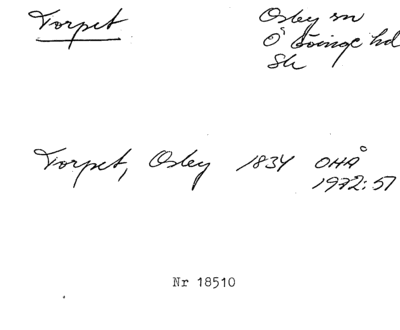 Torpet
Osby sn
Ö Göinge hd
Sk
Torpet, Osby 1834 OHÅ
1972:57
Nr 18510